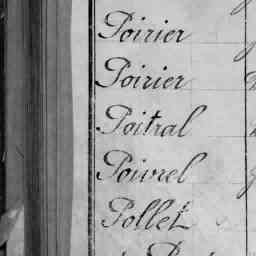 Poirier
Poirier
Poitral
Poivrel
Pollet